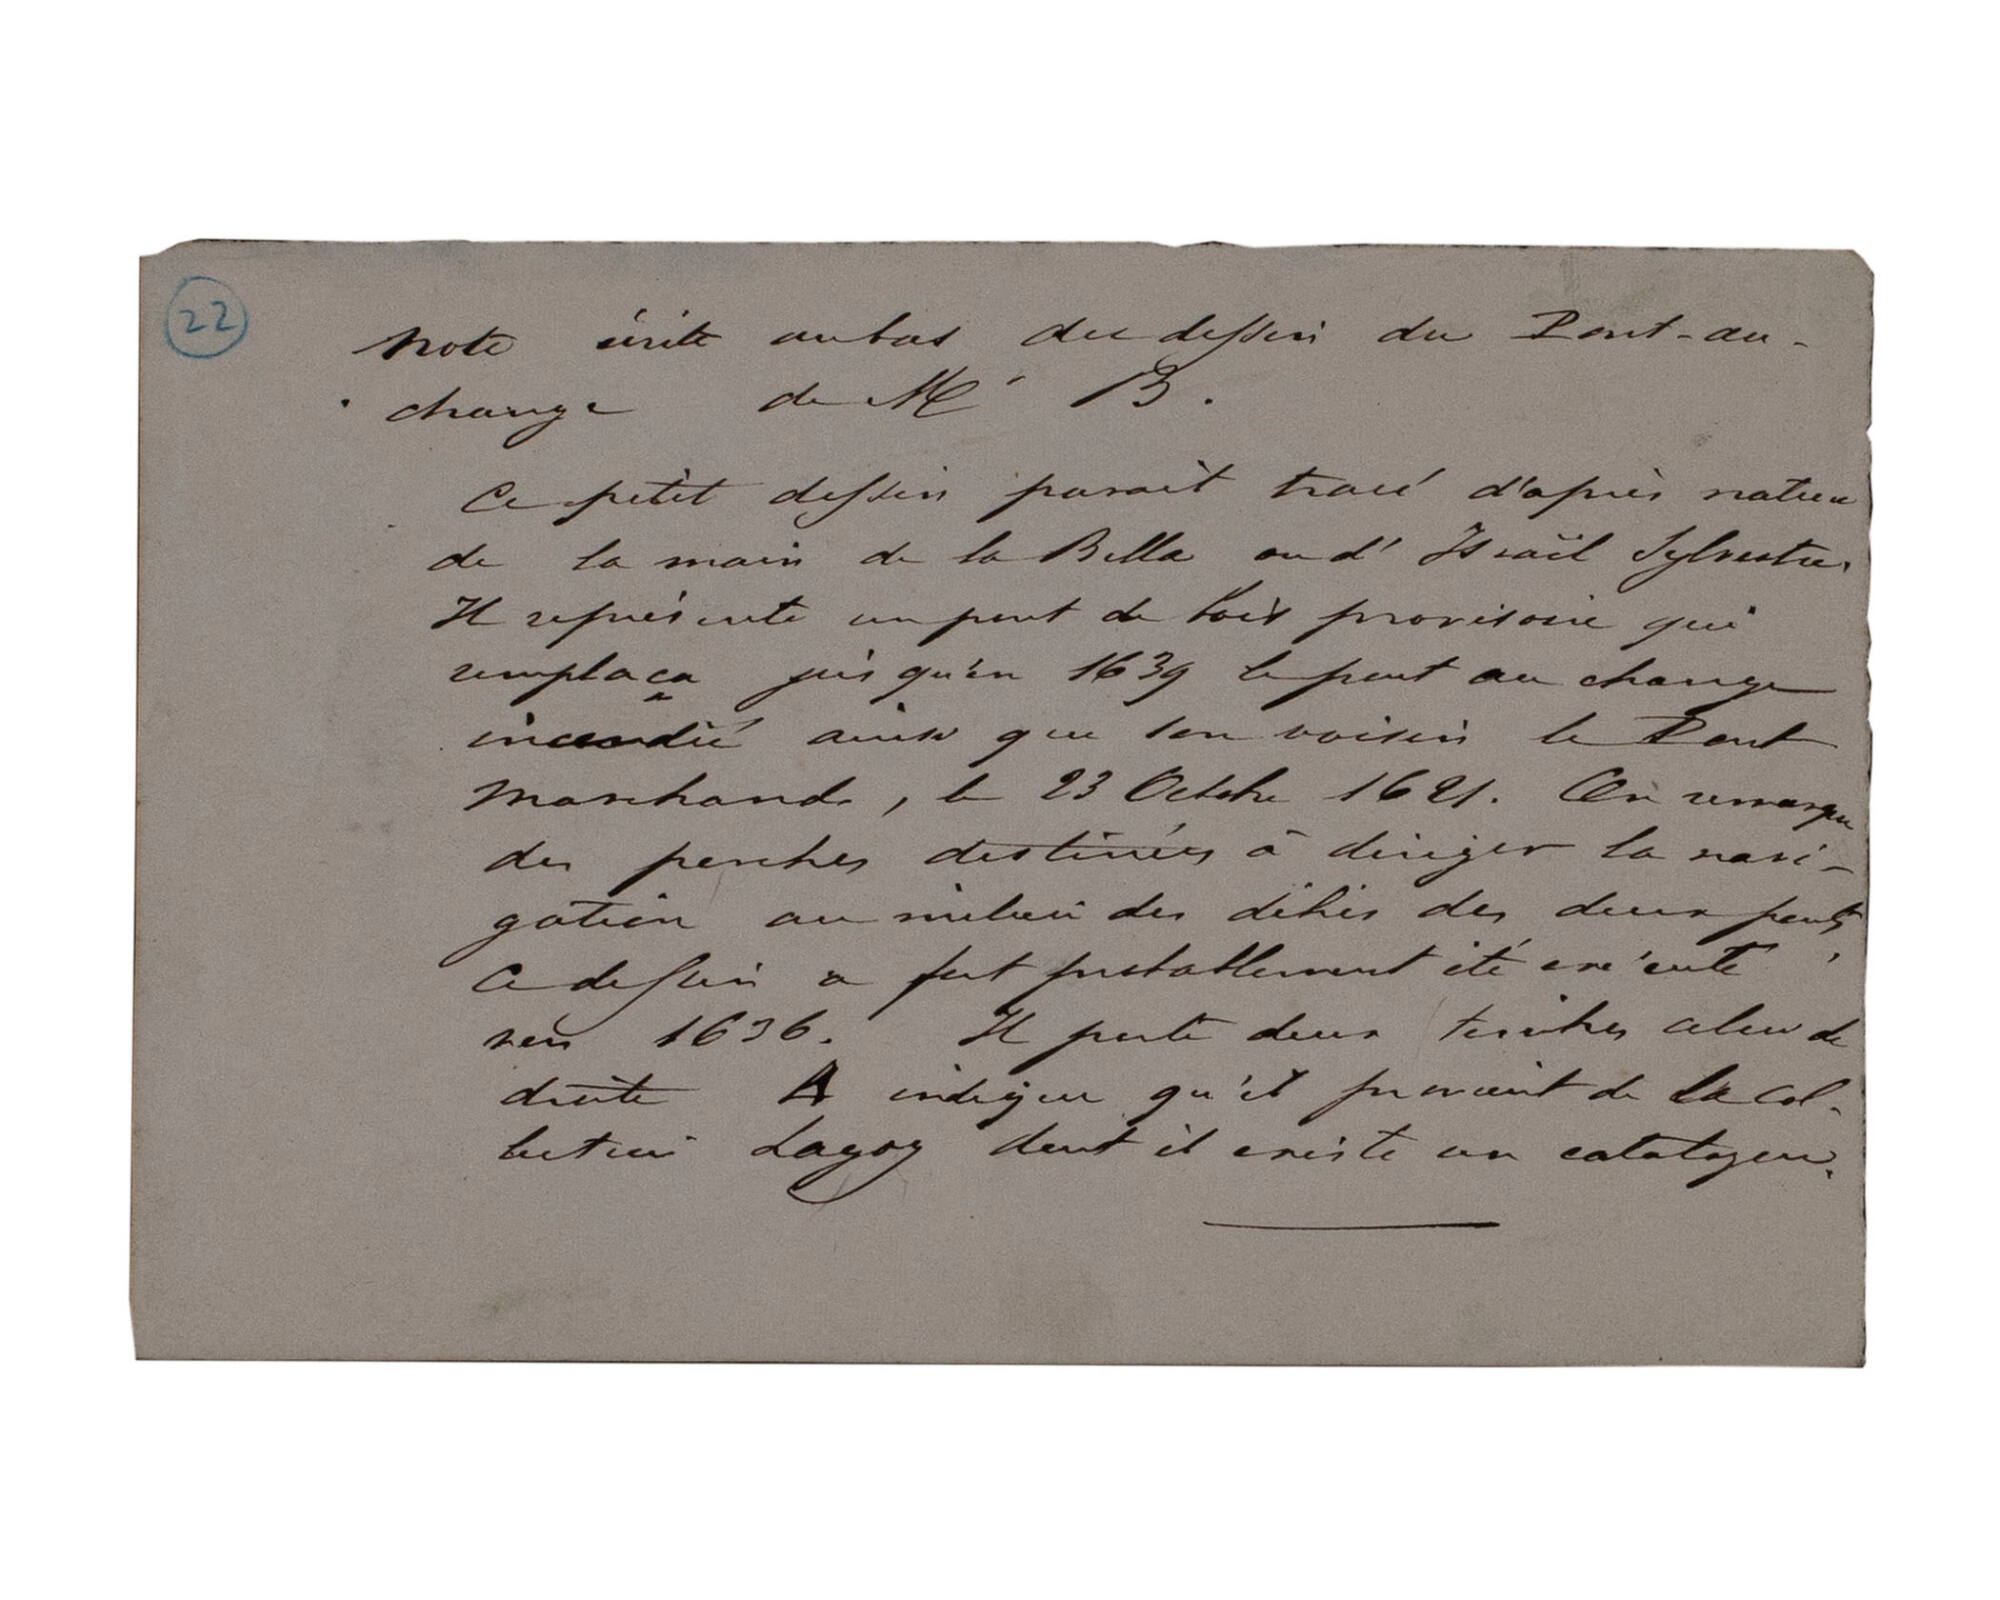 22
Note écrite au bas du dessin du Pont-au-
change de Mr B.
Ce petit dessin parait tracé d'après nature
de la main de la Bella ou d'Israël Sylvestre.
Il représente un pont de bois provisoire qui
remplaça jusqu'en 1639 le pont au change
incendié ainsi que son voisin le Pont
Marchand, le 23 Octobre 1621. On remarque
des perches destinées à diriger la navi-
gation au milieu des débris des deux ponts
Ce dessin a fort probablement été exécuté
vers 1636. Il porte deux timbres celui de
droite A indique qu'il provient de la col-
lection Lagoy dont il existe un catalogue.